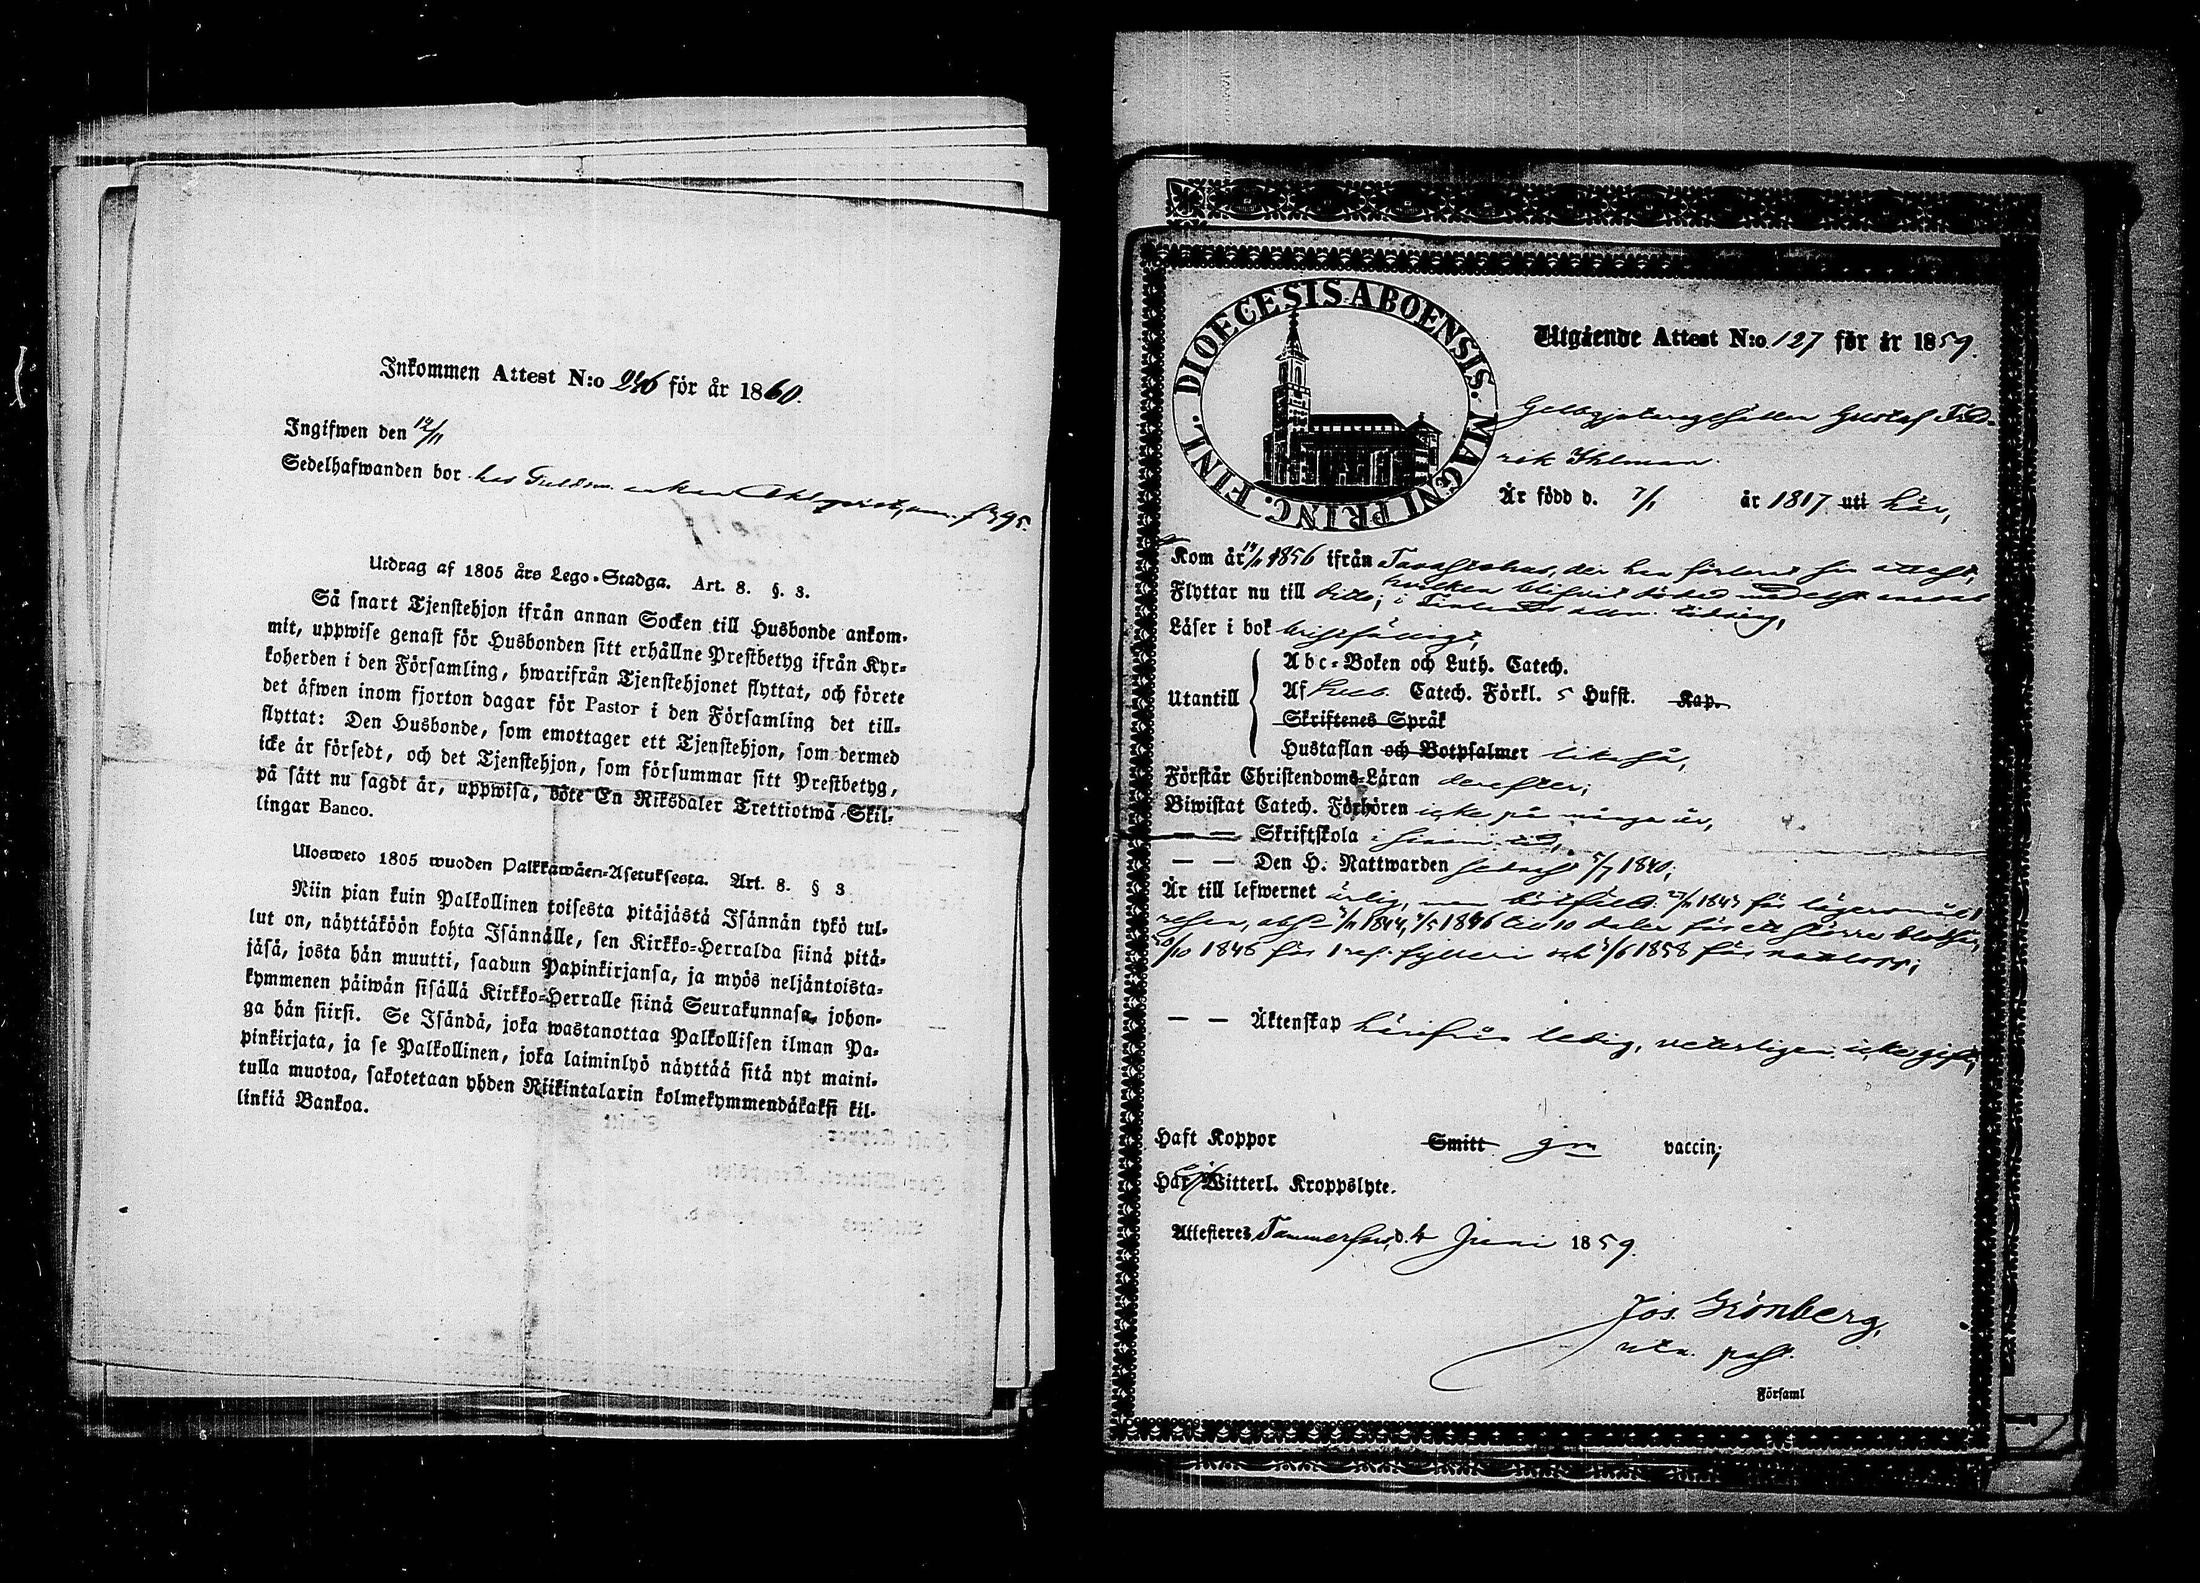 Inkommen Attest N:o 246 för år 1860.
Ingifwen den 12/11
Sedelhafwanden bor hos enkan Ahlqvist,
Utdrag af 1805 års Lego-Stadga. Art. 8. §. 3.
Så snart Tjenstehjon ifrån annan Socken till Husbonde ankom-
mit, uppwise genast för Husbonden sitt erhållne Prestbetyg ifrån Kyr-
koherden i den Församling, hwarifrån Tjenstehjonet flyttat, och förete
det äfwen inom fjorton dagar för Pastor i den Församling det till-
flyttat: Den Husbonde, som emottager ett Tjenstehjon, som dermed
icke är försedt, och det Tjenstehjon, som försummar sitt Prestbetyg,
på sätt nu sagdt är, uppwisa, böte En Riksdaler Trettiotwå Skil-
lingar Banco.
Ulosweto 1805 wuoden Palkkawäen-Asetuksesta. Art. 8. § 3.
Niin pian kuin Palkollinen toisesta pitäjästä Isännän tykö tul-
lut on, näyttäköön kohta Isännälle, sen Kirkko-Herralda siinä pitä-
jäsä, josta hän muutti, saadun Papinkirjansa, ja myös neljäntoista-
kymmenen päiwän sisällä Kirkko-Herralle siinä Seurakunnasa, johon-
ga hän siirsi. Se Isändä, joka wastanottaa Palkollisen ilman Pa-
pinkirjata, ja se Palkollinen, joka laiminlyö näyttää sitä nyt maini-
tulla muotoa, sakotetaan yhden Riikintalarin kolmekymmendäkaksi kil-
linkiä Bankoa.
DIOECESIS ABOENSIS. MAGNI PRINC. FINL.
Utgående Attest N:o 127 för år 1859.
Gelbgjutaregesällen Gustaf Fred-
rik Ihlman.
Är född d. 7/1 år 1817 uti här,
Kom år 14/11 1856 ifrån Tavastehus, der han förlorat sin attest,
Flyttar nu till dito; i Finlands allm. tidning,
Läser i bok bristfälligt,
Utantill
Abc-Boken och Luth. Catech.
Af Sveb. Catech. Förkl. 5 Hufst. Kap.
Skriftenes Språk
Hustaflan och Botpsalmer likaså,
Förstår Christendoms-Läran derefter;
Biwistat Catech. Förhören icke på många år,
— — Skriftskola i sinom tid,
— — Den H. Nattwarden senast 5/7 1840;
Är till lefwernet ärlig, men bötfälld 1843 för lägersmål
1844, 1846 till 10 daler för ett större
1846 för 1 res. fylleri och 1/6 1858 för
— — Äktenskap härifrån ledig, veterligen icke gift,
Haft Koppor Smitt gm vaccin;
Har ej Witterl. Kroppslyte.
Attesteres Tammerfors, d. 4 Juni 1859.
Jos. Grönberg,
past.
Församl